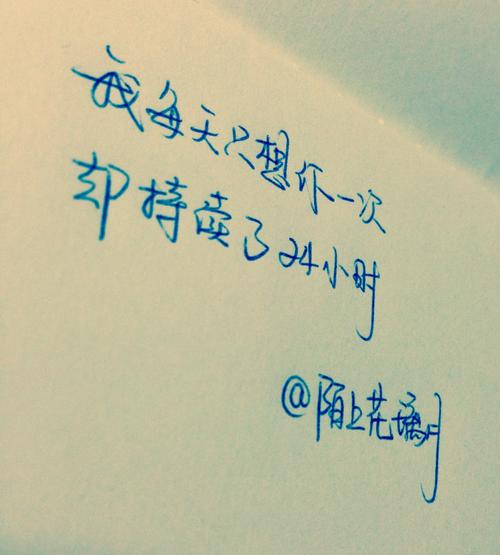 我每天只想你一次
却持续了24小时
@陌上花璃月